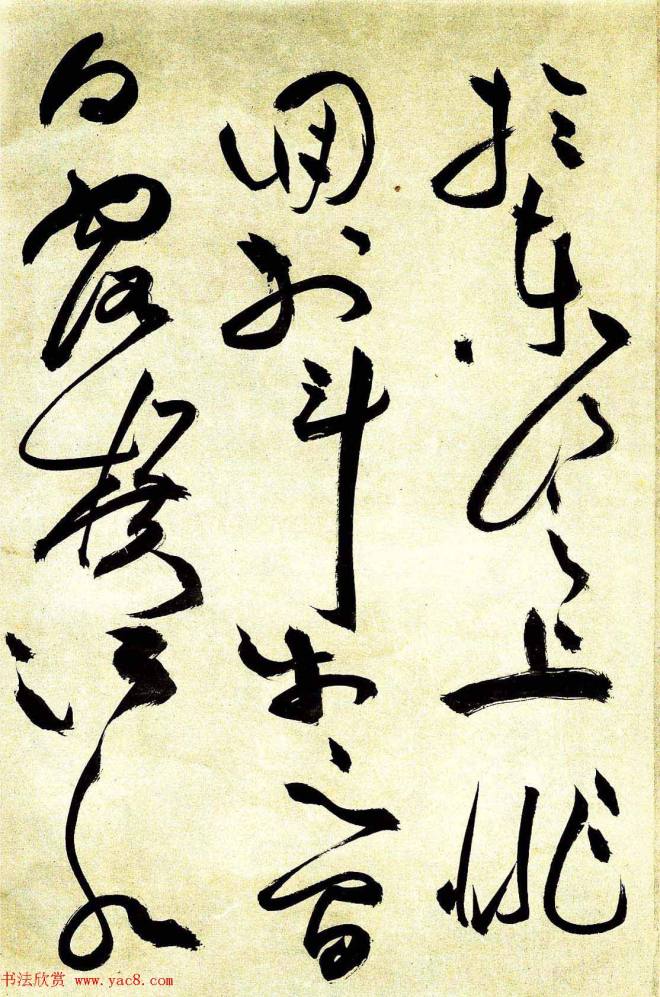 於東山之上徘
徊於斗牛之間
白露橫江水
书法欣赏 www.yac8.com